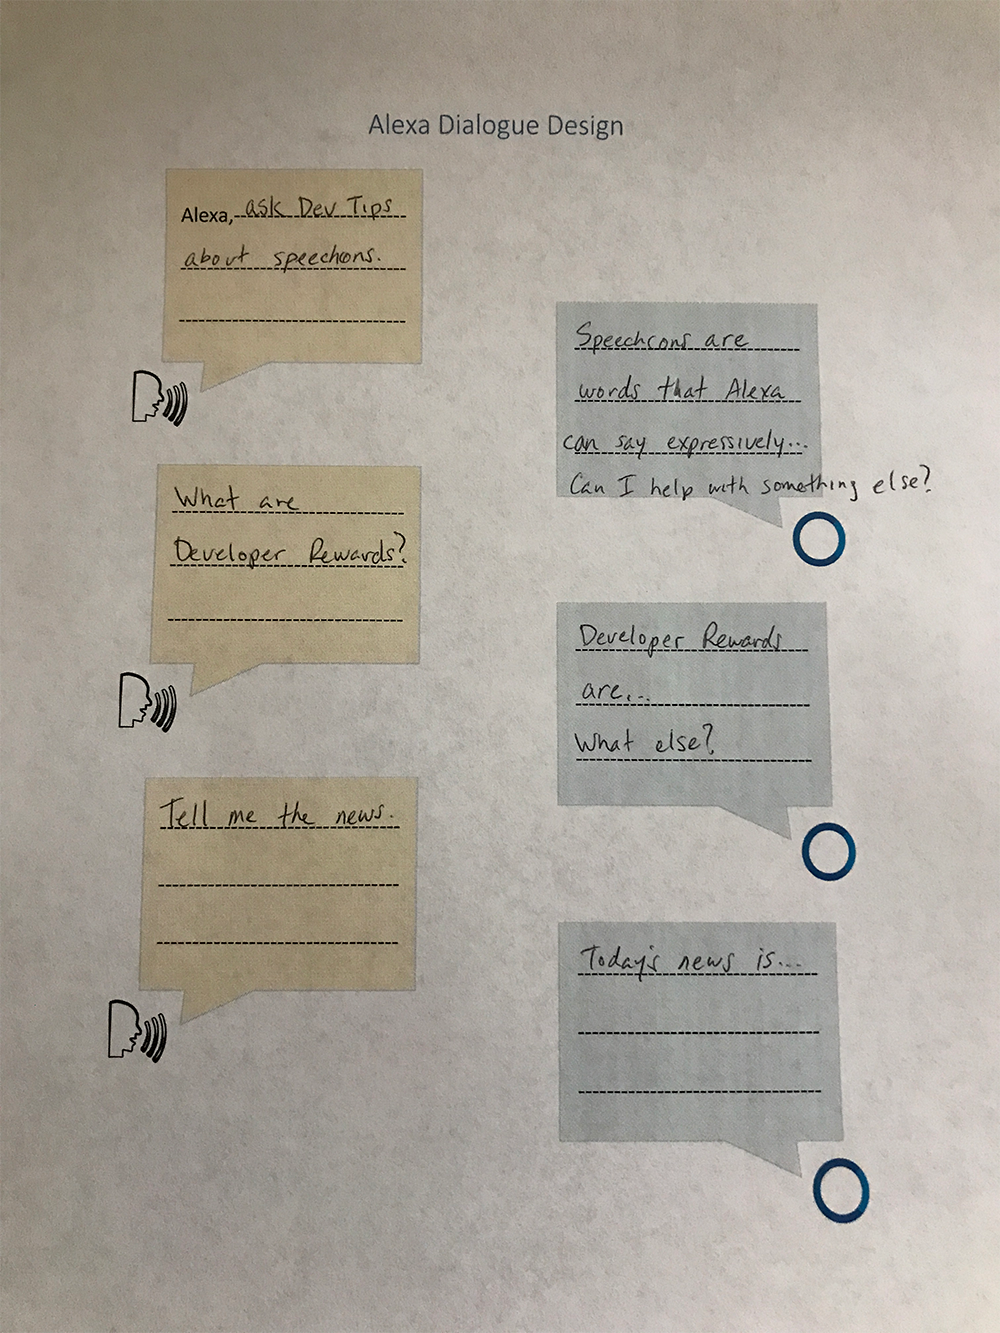 Alexa Dialogue Design
Alexa, ask Dev Tips
about speechcons.
Speechcons are
words that Alexa
can say expressively...
Can I help with something else?
What are
Developer Rewards?
Developer Rewards
are...
What else?
Tell me the news.
Today's news is...